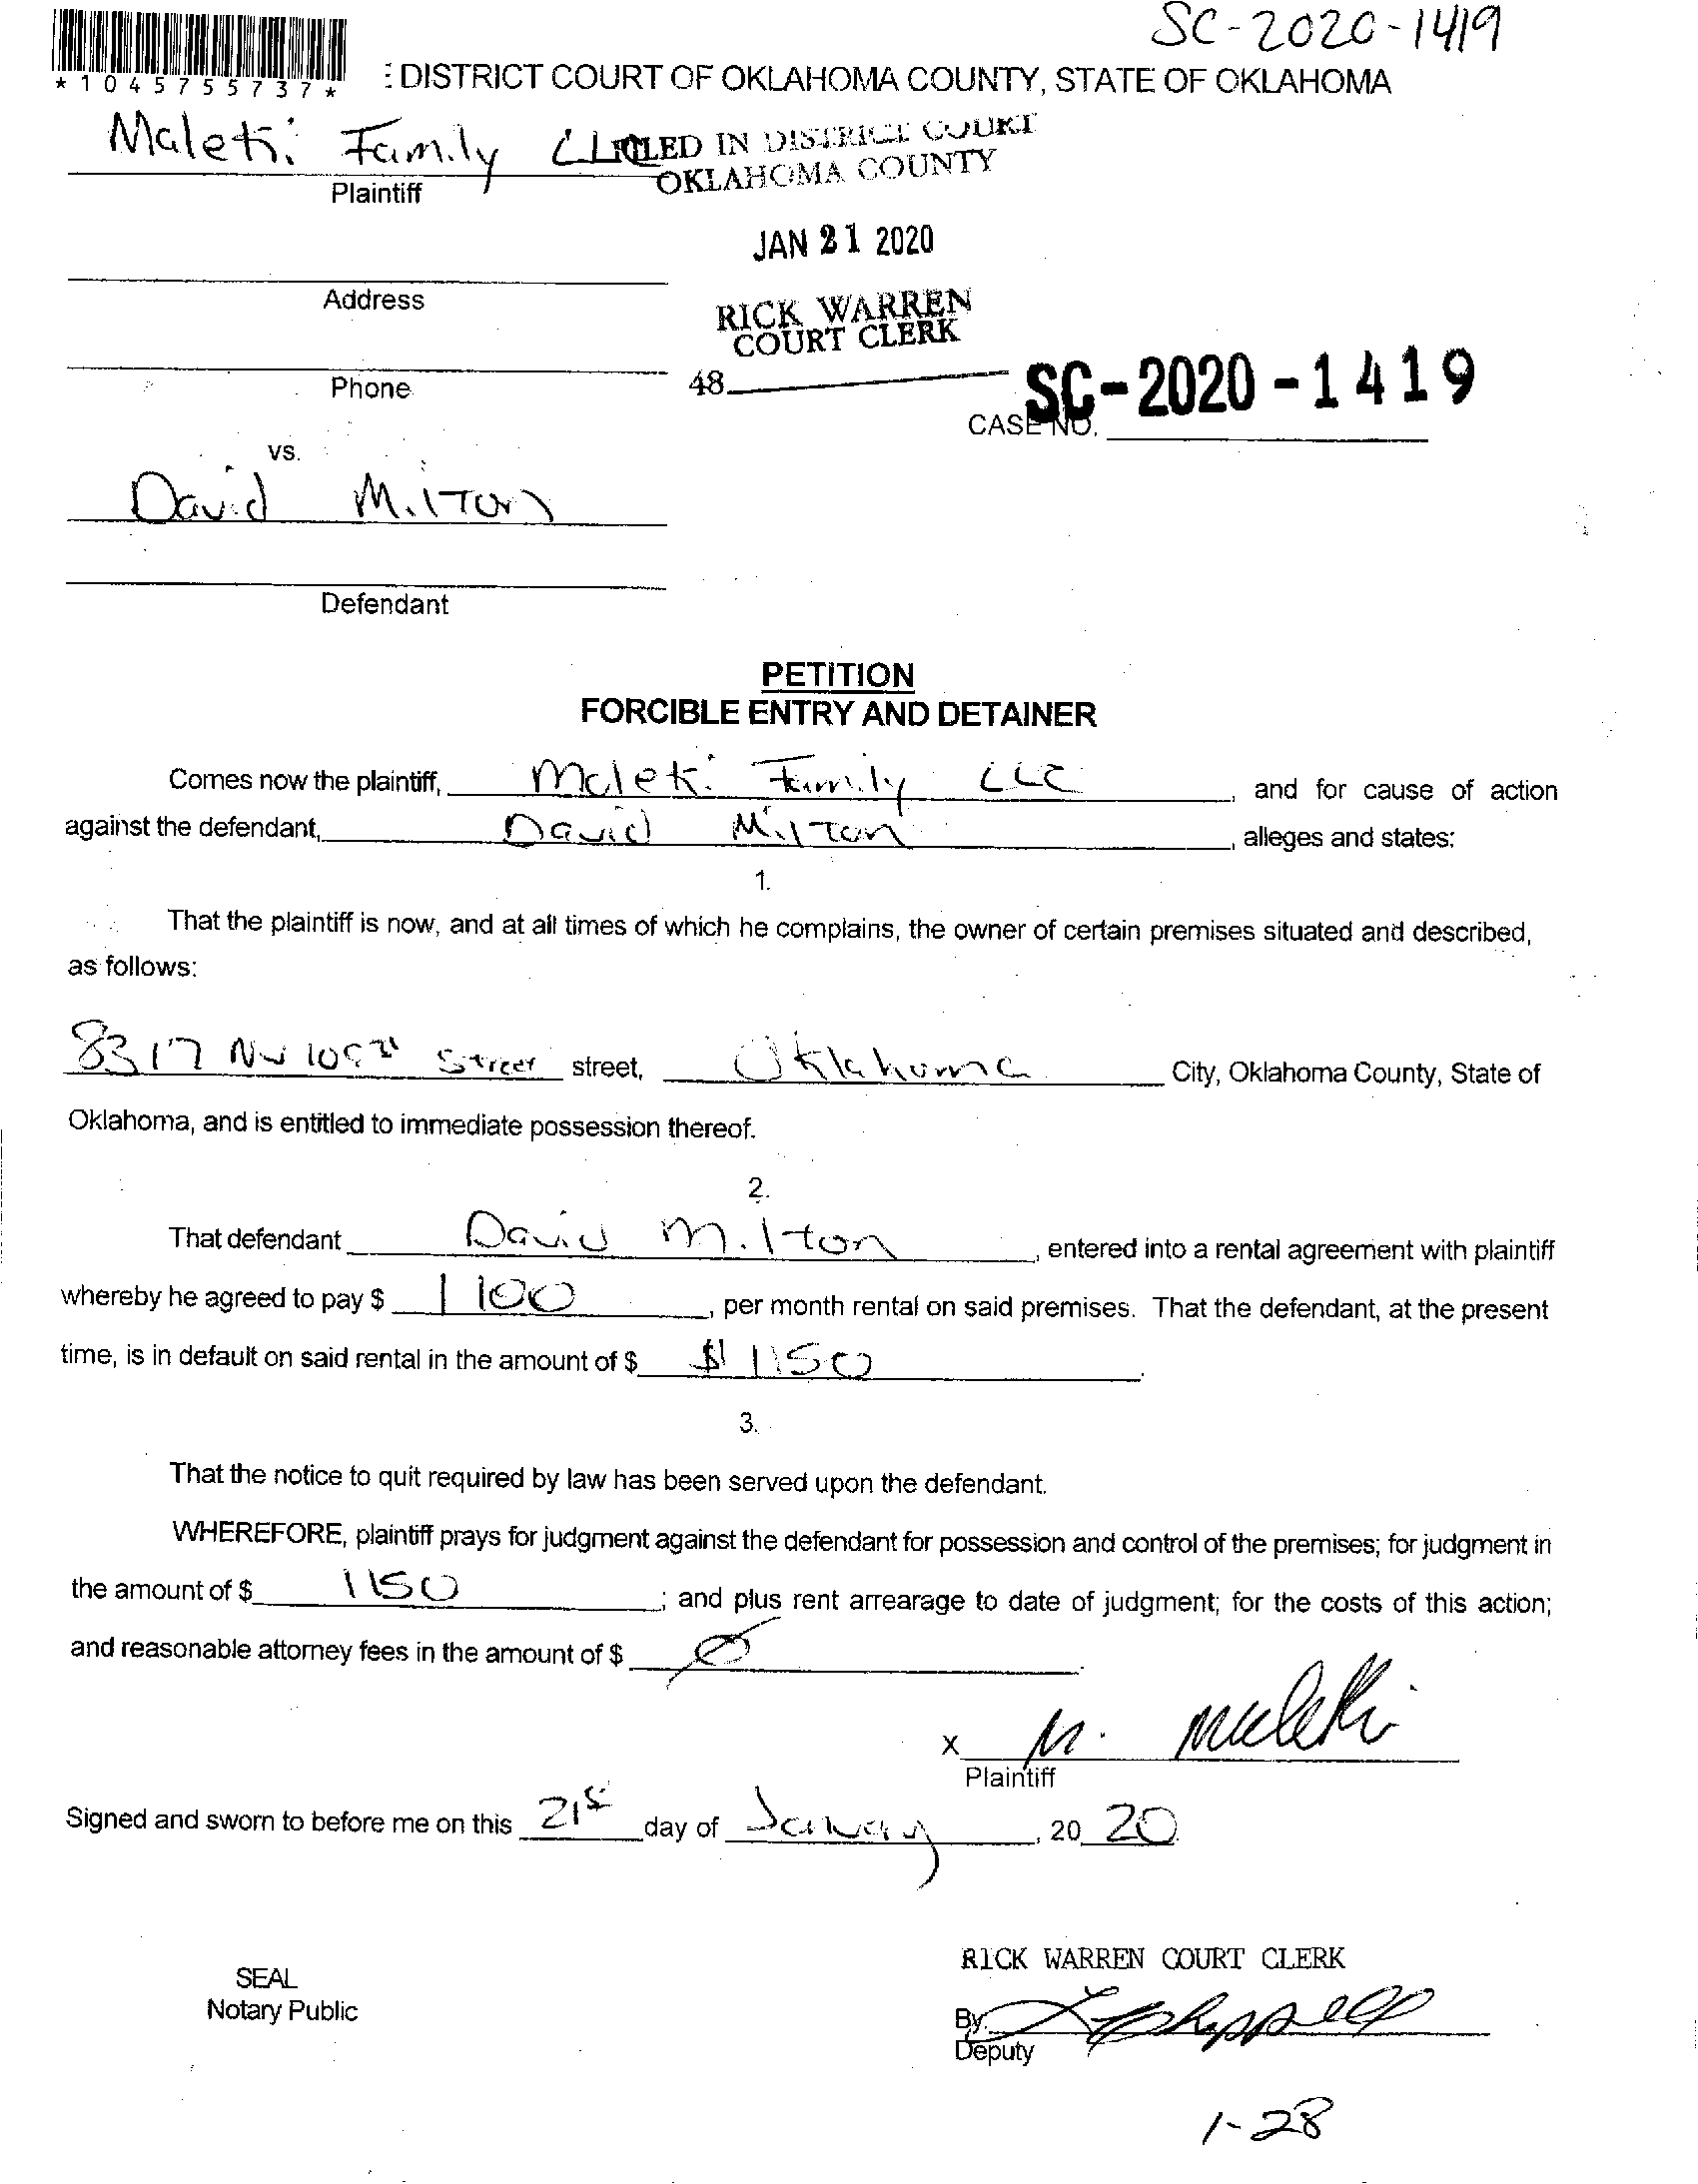 SC-2020-1419
*1045755737*
: DISTRICT COURT OF OKLAHOMA COUNTY, STATE OF OKLAHOMA
Maleki Family LLC FILED IN DISTRICT COURT
Plaintiff
OKLAHOMA COUNTY
JAN 21 2020
Address
RICK WARREN
COURT CLERK
Phone
48
SC-2020-1419
CASE NO.
vs.
David Milton
Defendant
PETITION
FORCIBLE ENTRY AND DETAINER
Comes now the plaintiff, Maleki Family LLC, and for cause of action
against the defendant, David Milton, alleges and states:
1.
That the plaintiff is now, and at all times of which he complains, the owner of certain premises situated and described,
as follows:
8317 NW 109th Street street, Oklahoma City, Oklahoma County, State of
Oklahoma, and is entitled to immediate possession thereof.
2.
That defendant David Milton, entered into a rental agreement with plaintiff
whereby he agreed to pay $ 1100, per month rental on said premises. That the defendant, at the present
time, is in default on said rental in the amount of $ $1150.
3.
That the notice to quit required by law has been served upon the defendant.
WHEREFORE, plaintiff prays for judgment against the defendant for possession and control of the premises; for judgment in
the amount of $ 1150; and plus rent arrearage to date of judgment; for the costs of this action;
and reasonable attorney fees in the amount of $ Ø.
x M. Maleki
Plaintiff
Signed and sworn to before me on this 21st day of January, 20 20.
RICK WARREN COURT CLERK
SEAL
Notary Public
By
Deputy
1-28